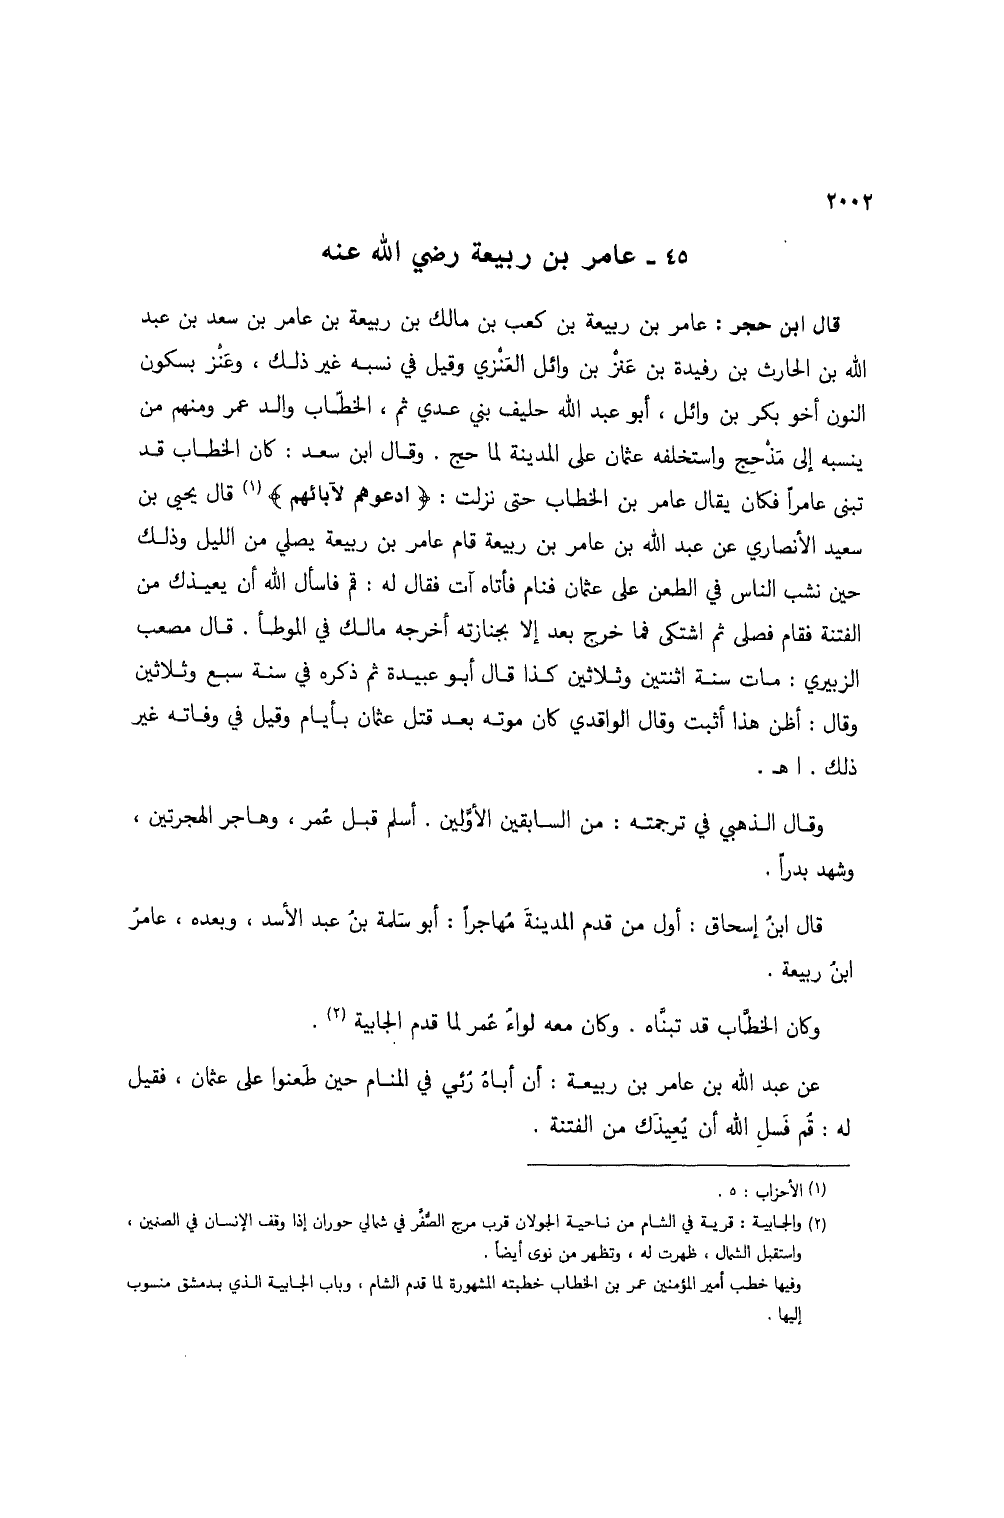 ٢٠٠٢
٤٥ ـ عامر بن ربيعة رضي الله عنه
قال ابن حجر : عامر بن ربيعة بن كعب بن مالك بن ربيعة بن عامر بن سعد بن عبد
الله بن الحارث بن رفيدة بن عَنزْ بن وائل العَنْزي وقيل في نسبه غير ذلك ، وعَنْز بسكون
النون أخو بكر بن وائل ، أبو عبد الله حليف بني عدي ثم ، الخطّاب والد عمر ومنهم من
ينسبه إلى مَذْحج واستخلفه عثمان على المدينة لما حج . وقال ابن سعد : كان الخطاب قد
تبنى عامراً فكان يقال عامر بن الخطاب حتى نزلت : ﴿ ادعوهم لآبائهم ﴾ (١) قال يحيى بن
سعيد الأنصاري عن عبد الله بن عامر بن ربيعة قام عامر بن ربيعة يصلي من الليل وذلك
حين نشب الناس في الطعن على عثمان فنام فأتاه آت فقال له : قم فاسأل الله أن يعيذك من
الفتنة فقام فصلى ثم اشتكى فما خرج بعد إلا بجنازته أخرجه مالك في الموطأ . قال مصعب
الزبيري : مات سنة اثنتين وثلاثين كذا قال أبو عبيدة ثم ذكره في سنة سبع وثلاثين
وقال : أظن هذا أثبت وقال الواقدي كان موته بعد قتل عثمان بأيام وقيل في وفاته غير
ذلك . ا هـ .
وقال الذهبي في ترجمته : من السابقين الأوَّلين . أسلم قبل عُمر ، وهاجر الهجرتين ،
وشهد بدراً .
قال ابنُ إسحاق : أول من قدم المدينةَ مُهاجراً : أبو سَلمة بنُ عبد الأسد ، وبعده ، عامرُ
ابنُ ربيعة .
وكان الخطَّاب قد تبنَّاه . وكان معه لواءُ عُمر لما قدم الجابية (٢) .
عن عبد الله بن عامر بن ربيعة : أن أباهُ رُئي في المنام حين طَعنوا على عثمان ، فقيل
له : قُم فَسلِ الله أن يُعِيذَك من الفتنة .
(١) الأحزاب : ٥ .
(٢) والجابية : قرية في الشام من ناحية الجولان قرب مرج الصُّفَّر في شمالي حوران إذا وقف الإنسان في الصنمين ،
واستقبل الشمال ، ظهرت له ، وتظهر من نوى أيضاً .
وفيها خطب أمير المؤمنين عمر بن الخطاب خطبته المشهورة لما قدم الشام ، وباب الجابية الذي بدمشق منسوب
إليها .